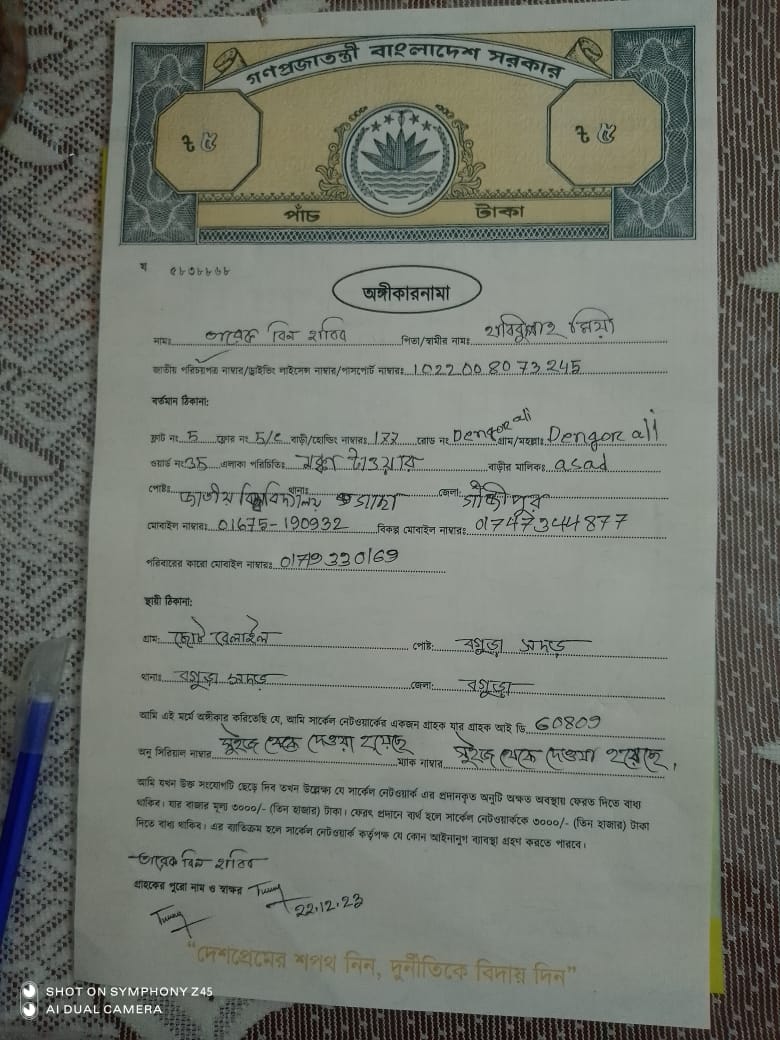 গণপ্রজাতন্ত্রী বাংলাদেশ সরকার
৳ ৫ ৳ ৫
পাঁচ টাকা
খ ৫৮৩৮৮৬৮
অঙ্গীকারনামা
নামঃ তারেক বিন হাবিব পিতা/স্বামীর নামঃ হাবিবুল্লাহ মিয়া
জাতীয় পরিচয়পত্র নাম্বার/ড্রাইভিং লাইসেন্স নাম্বার/পাসপোর্ট নাম্বারঃ 1022008073245
বর্তমান ঠিকানা:
ফ্লাট নং 5 ফ্লোর নং 5/c বাড়ী/হোল্ডিং নাম্বারঃ 177 রোড নং Dengor ali গ্রাম/মহল্লাঃ Dengor ali
ওয়ার্ড নং 35 এলাকা পরিচিতিঃ মক্কা টাওয়ার বাড়ীর মালিকঃ asad
পোষ্টঃ জাতীয় বিশ্ববিদ্যালয় থানাঃ গাছা জেলা: গাজীপুর
মোবাইল নাম্বারঃ 01675-190932 বিকল্প মোবাইল নাম্বারঃ 01747344877
পরিবারের কারো মোবাইল নাম্বারঃ 01749330169
স্থায়ী ঠিকানা:
গ্রাম: ছোট বেলাইল পোষ্ট: বগুড়া সদর
থানাঃ বগুড়া সদর জেলা: বগুড়া
আমি এই মর্মে অঙ্গীকার করিতেছি যে, আমি সার্কেল নেটওয়ার্কের একজন গ্রাহক যার গ্রাহক আই ডি 60809
অনু সিরিয়াল নাম্বার সুইচ থেকে দেওয়া হয়েছে ম্যাক নাম্বার সুইচ থেকে দেওয়া হয়েছে,
আমি যখন উক্ত সংযোগটি ছেড়ে দিব তখন উল্লেক্ষ্য যে সার্কেল নেটওয়ার্ক এর প্রদানকৃত অনুটি অক্ষত অবস্থায় ফেরত দিতে বাধ্য
থাকিব। যার বাজার মূল্য ৩০০০/- (তিন হাজার) টাকা। ফেরৎ প্রদানে ব্যর্থ হলে সার্কেল নেটওয়ার্ককে ৩০০০/- (তিন হাজার) টাকা
দিতে বাধ্য থাকিব। এর ব্যতিক্রম হলে সার্কেল নেটওয়ার্ক কর্তৃপক্ষ যে কোন আইনানুগ ব্যাবস্থা গ্রহণ করতে পারবে।
তারেক বিন হাবিব
গ্রাহকের পুরো নাম ও স্বাক্ষর
22.12.23
“দেশপ্রেমের শপথ নিন, দুর্নীতিকে বিদায় দিন”
SHOT ON SYMPHONY Z45
AI DUAL CAMERA